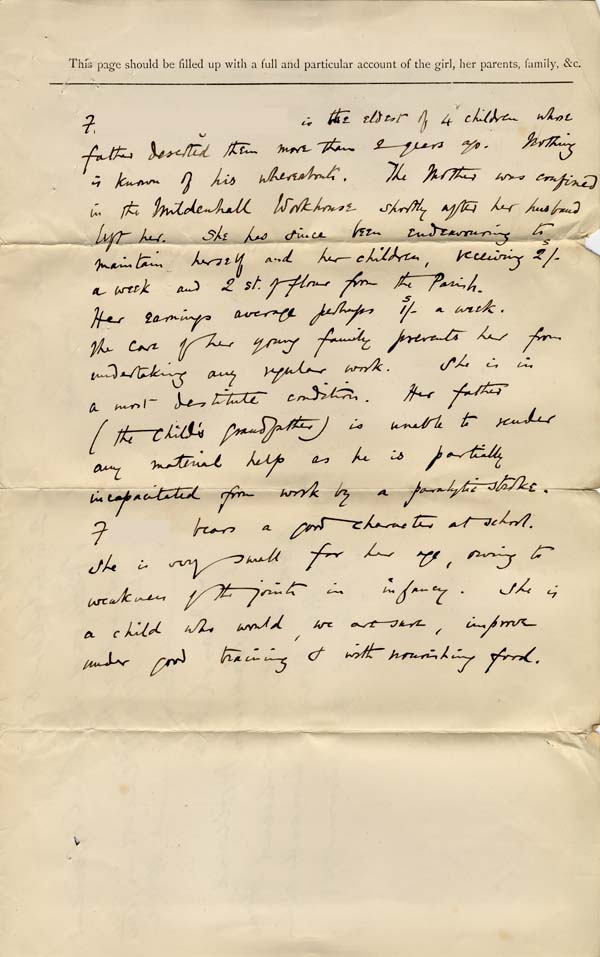 This page should be filled up with a full and particular account of the girl, her parents, family, &c.
F. is the eldest of 4 children whose
father deserted them more than 2 years ago. Nothing
is known of his whereabouts. The Mother was confined
in the Mildenhall Workhouse shortly after her husband
left her. She has since been endeavouring to
maintain herself and her children, receiving 2s/-
a week and 2 st. of flour from the Parish.
Her earnings average perhaps 1s/- a week.
The care of her young family prevents her from
undertaking any regular work. She is in
a most destitute condition. Her father
(the child's grandfather) is unable to render
any material help as he is partially
incapacitated from work by a paralytic stroke.
F bears a good character at school.
She is very small for her age, owing to
weakness of the joints in infancy. She is
a child who would, we are sure, improve
under good training & with nourishing food.